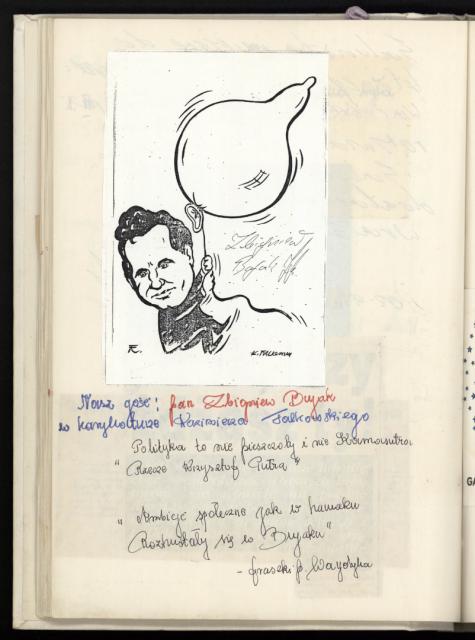 Zbigniew
Bujak
K. Fałkowski
Nasz gość: pan Zbigniew Bujak
w karykaturze Kazimierza Fałkowskiego
Polityka to nie pieszczoty i nie Kamasutra
" Rzecze Krzysztof Putra "
" Ambicje społeczne jak w hamaku
Rozhuśtały się w Bujaku "
- fraszki p. Wajdyka
GA